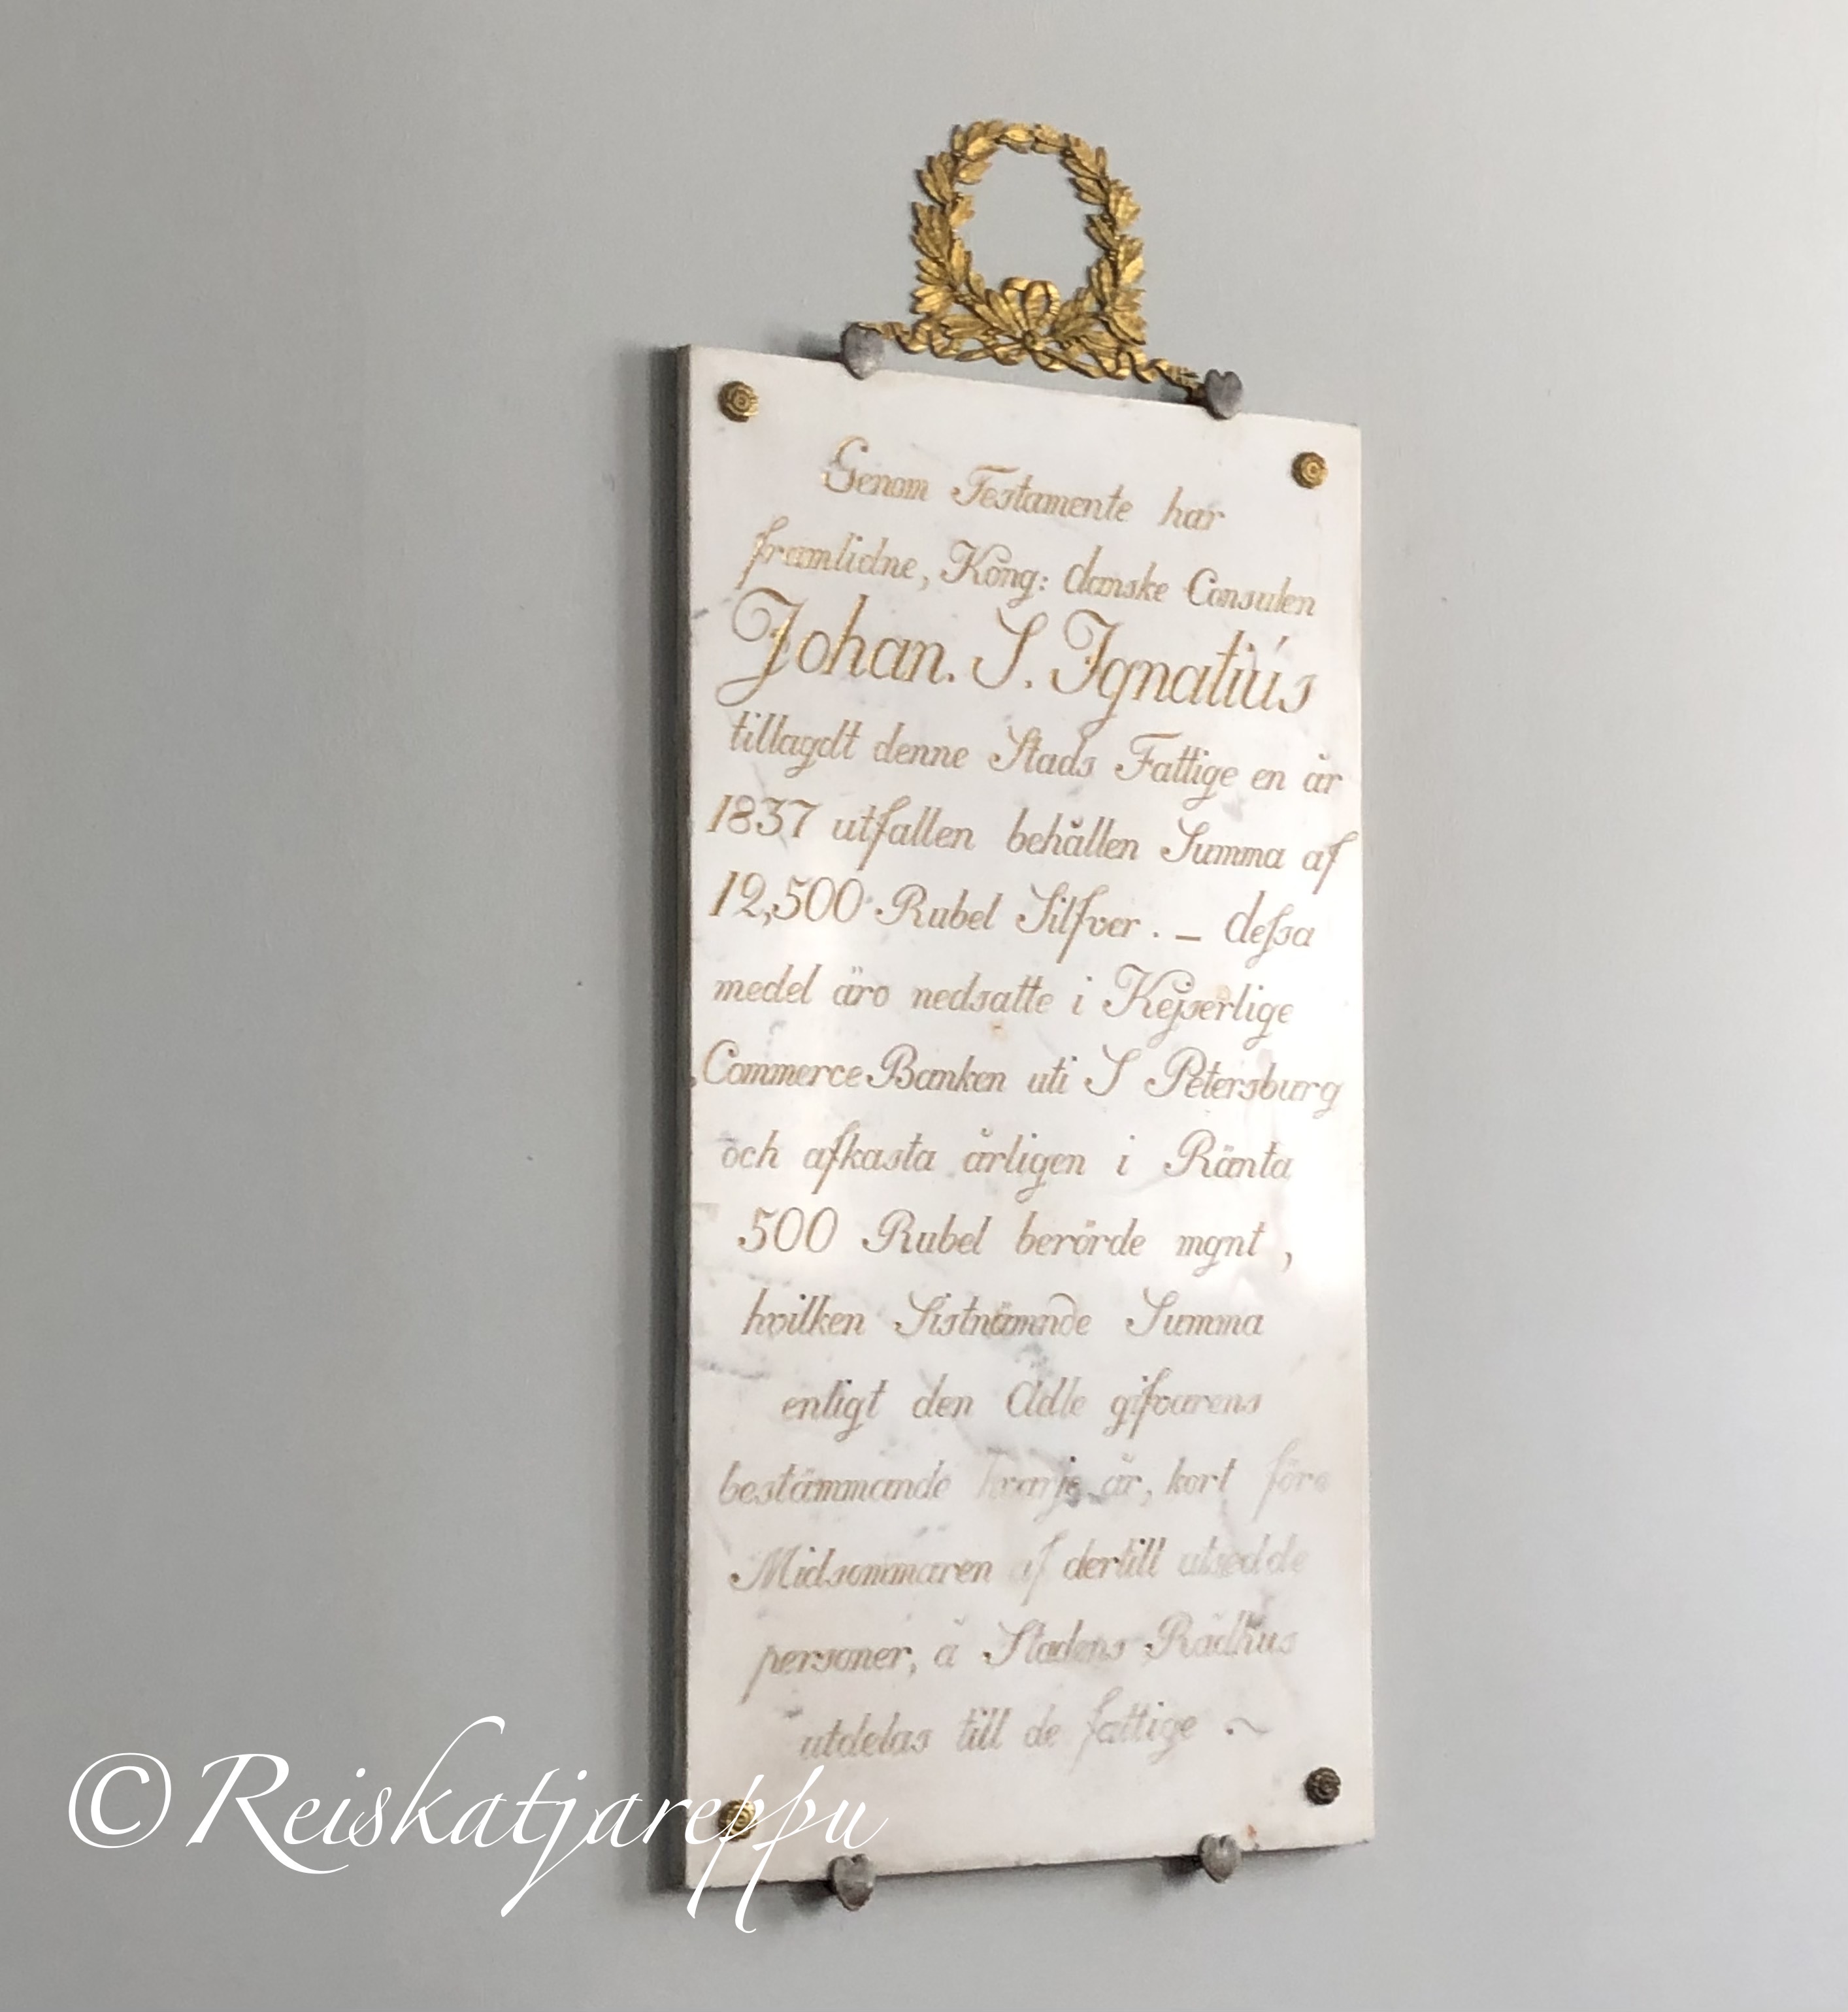 Genom Testamente har
framlidne, Kong: danske Consulen
Johan. S. Ignatius
tillagdt denne Stads Fattige en år
1837 utfallen behållen Summa af
12,500 Rubel Silfver. _ deſsa
medel äro nedsatte i Kejserlige
Commerce Banken uti S Petersburg
och afkasta årligen i Ränta
500 Rubel berörde mgnt,
hvilken Sistnämnde Summa
enligt den Ädle gifvarens
bestämmande hvarje år, kort före
Midsommaren af dertill utsedde
personer, å Stadens Rådhus
utdelas till de fattige ~
©Reiskatjareppu